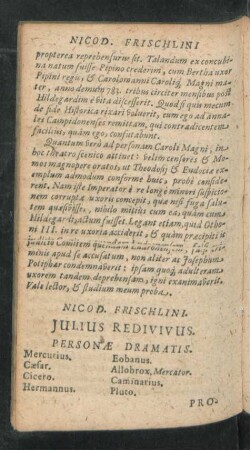 NICOD. FRISCHLINI
propterea reprehensurus sit. Talandum ex concubi-
na natum fuisse Pipino crederem, cum Bertha uxor
Pipini regis, & Carolomanni Caroliq́; Magni ma-
ter, anno demum 783. tribus circiter mensibus post
Hildegardim è vita discesserit. Quod si quis mecum
de fide Historica rixari voluerit, eum ego ad anna-
les Campidunenses remittam, qui contradicentem
facilius, quàm ego, confutabunt.
Quantum verò ad personam Caroli Magni, in
hoc theatro scenico attinet: velim censores & Mo-
mos magnopere oratos, ut Theodosij & Eudociæ ex-
emplum admodum conforme huic, probè conside-
rent. Nam iste Imperator è re longè minori suspicio-
nem corruptæ uxoris concepit, quæ nisi fuga salu-
tem quæsivisset, nihilo mitiùs cum ea, quàm cum
Hildegarde, actum fuisset. Legant etiam, quid Otho-
ni III. in re uxoria acciderit, & quàm præcipiti
judicio Comitem quendam
miniis apud se accusatum, non aliter ac Josephum
Potiphar condemnaverit: ipsam quoq́; adulteram
uxorem tandem deprehensam, igni exanimaverit.
Vale lector, & studium meum proba.
NICOD. FRISCHLINI.
JULIUS REDIVIVUS.
PERSONÆ DRAMATIS.
Mercurius.
Cæsar.
Cicero.
Hermannus.
Eobanus.
Allobrox, Mercator.
Caminarius.
Pluto.
PRO-